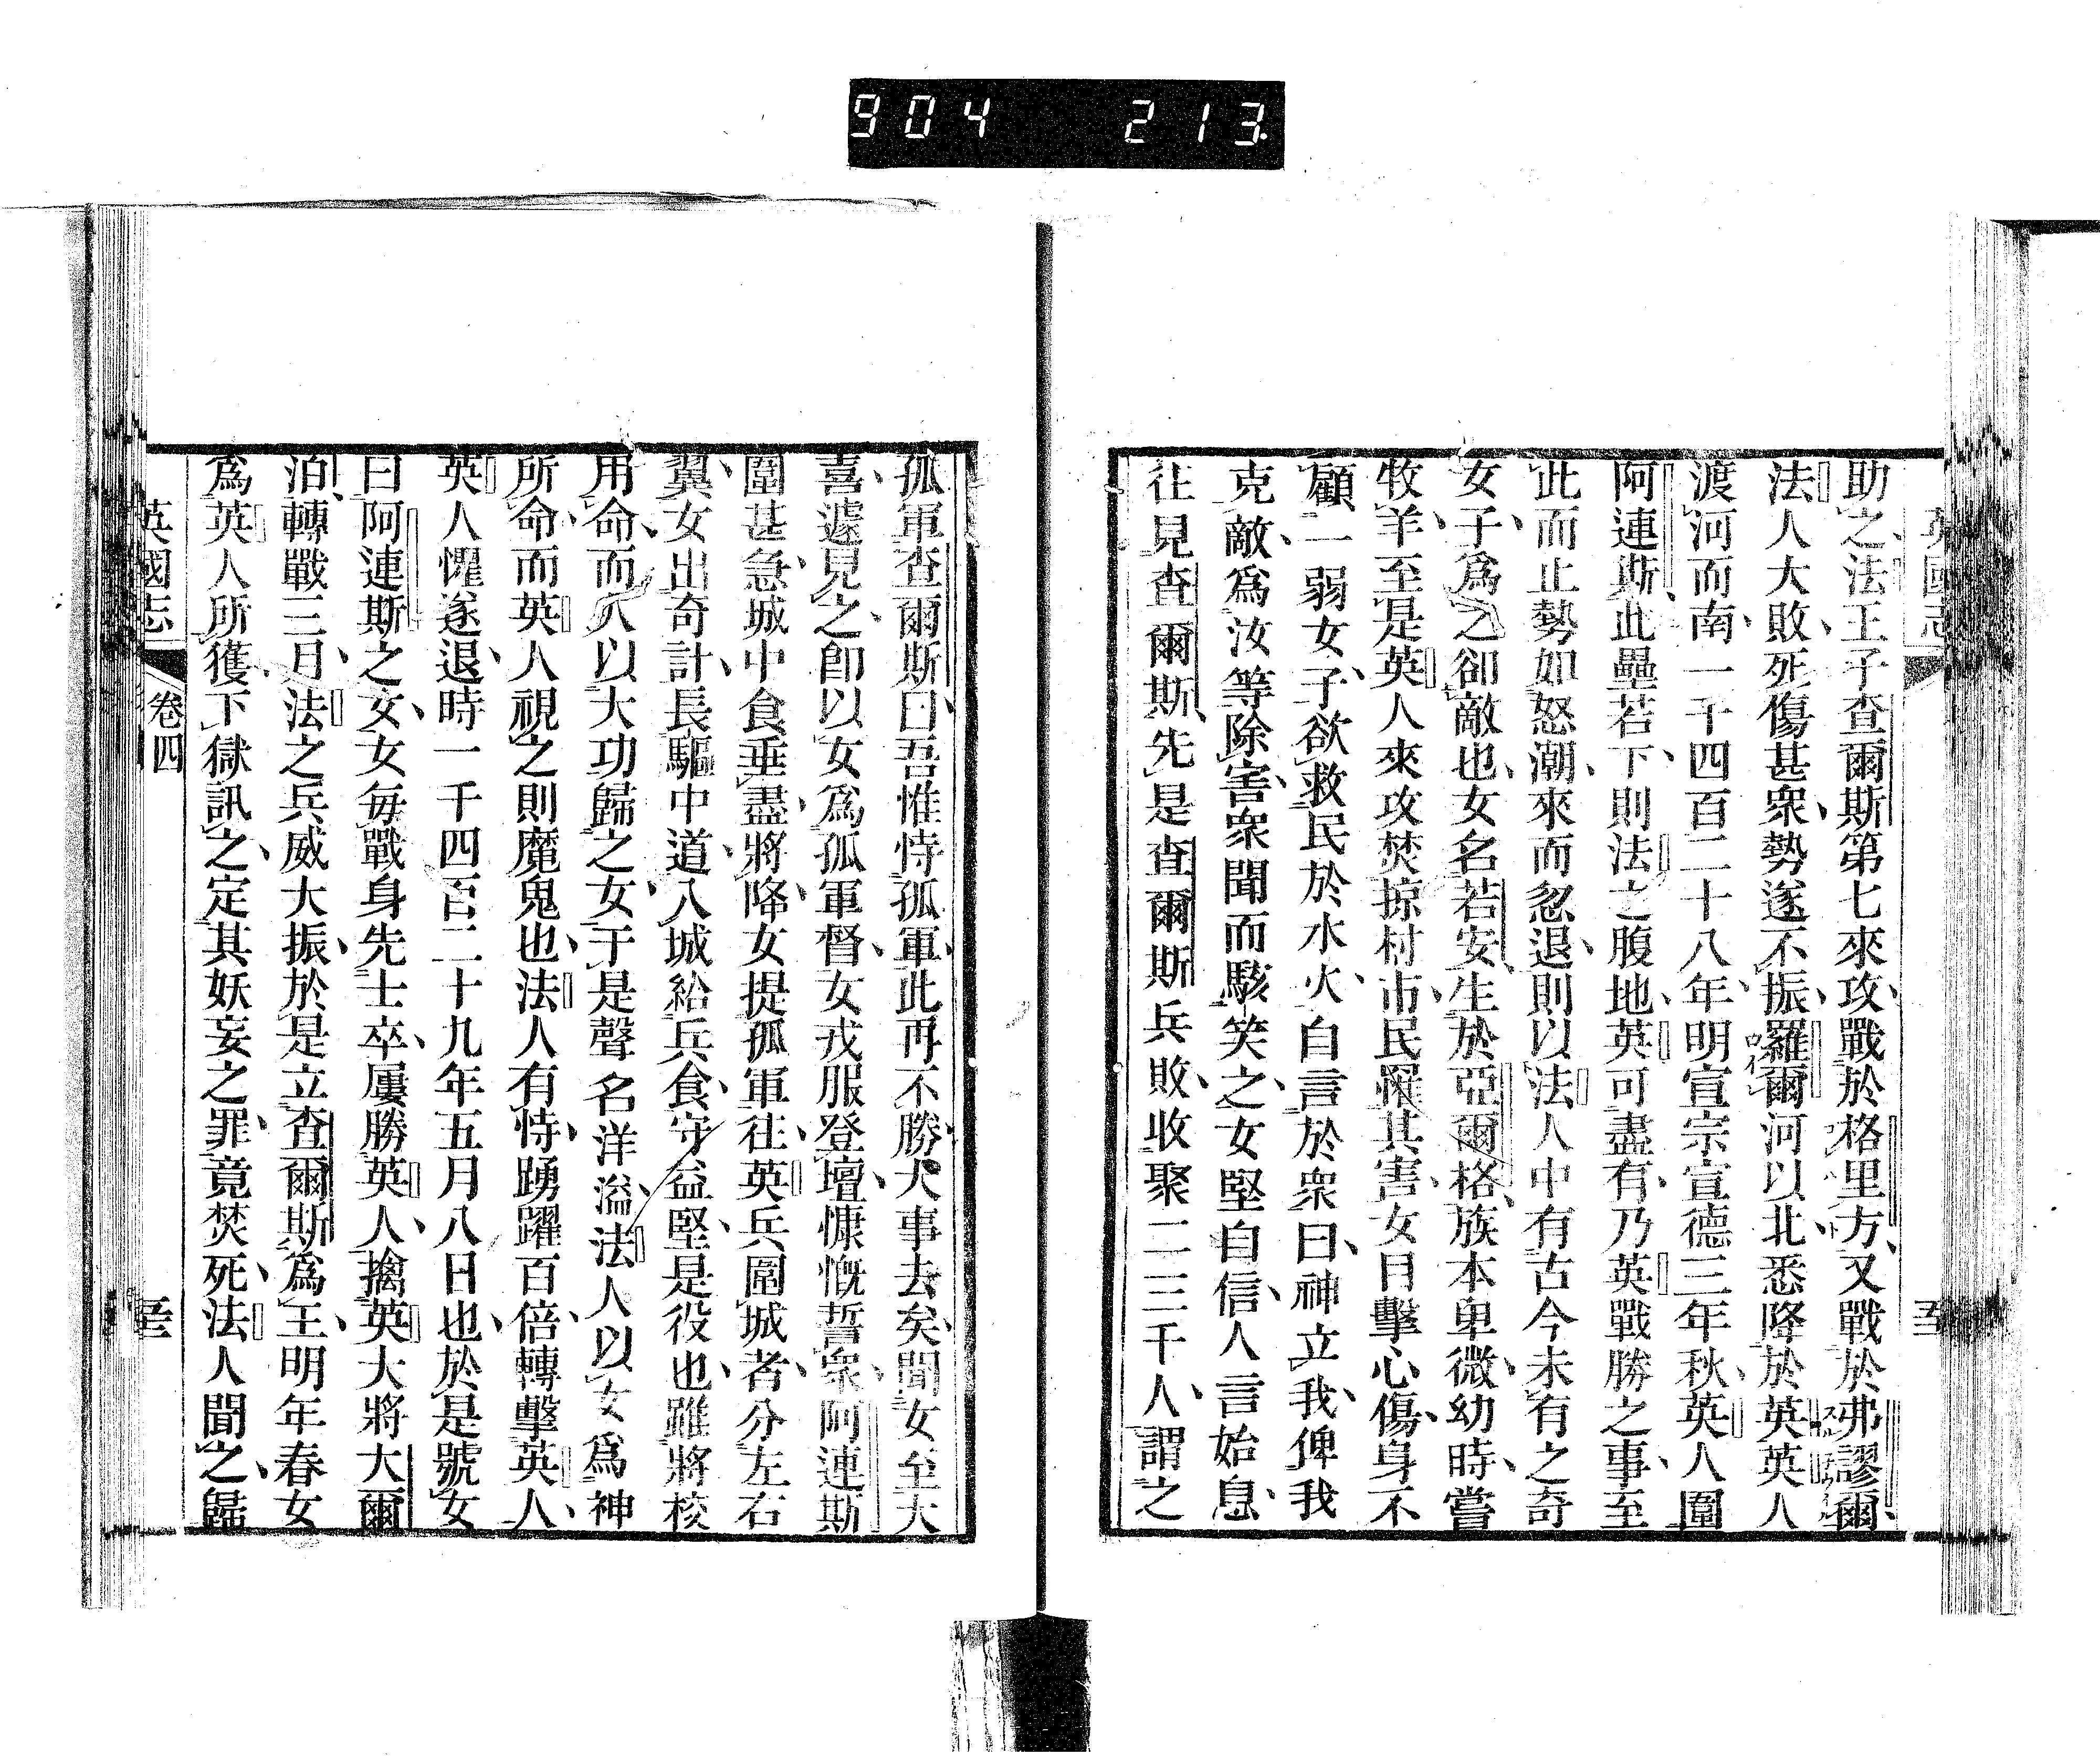 904 213
英國志
助之法王子查爾斯第七來攻戰於格里方又戰於弗謬爾
法人大敗死傷甚衆勢遂不振羅爾河以北悉降於英英人
渡河而南一千四百二十八年明宣宗宣德三年秋英人圍
阿連斯此壘若下則法之腹地英可盡有乃英戰勝之事至
此而止勢如怒潮來而忽退則以法人中有古今未有之奇
女子爲之卻敵也女名若安生於亞爾格族本卑微幼時嘗
牧羊至是英人來攻焚掠村市民罹其害女目擊心傷身不
顧一弱女子欲救民於水火自言於衆曰神立我俾我
克敵爲汝等除害衆聞而駭笑之女堅自信人言始息
往見查爾斯先是查爾斯兵敗收聚二三千人謂之
孤軍查爾斯曰吾惟恃孤軍此再不勝大事去矣聞女至大
喜遽見之卽以女爲孤軍督女戎服登壇慷慨誓衆阿連斯
圍甚急城中食垂盡將降女提孤軍往英兵圍城者分左右
翼女出奇計長驅中道入城給兵食守益堅是役也雖將校
用命而人以大功歸之女于是聲名洋溢法人以女爲神
所命而英人視之則魔鬼也法人有恃踴躍百倍轉擊英人
英人懼遂退時一千四百二十九年五月八日也於是號女
曰阿連斯之女女每戰身先士卒屢勝英人擒英大將大爾
泊轉戰三月法之兵威大振於是立查爾斯爲王明年春女
爲英人所獲下獄訊之定其妖妄之罪竟焚死法人聞之歸
英國志 卷四